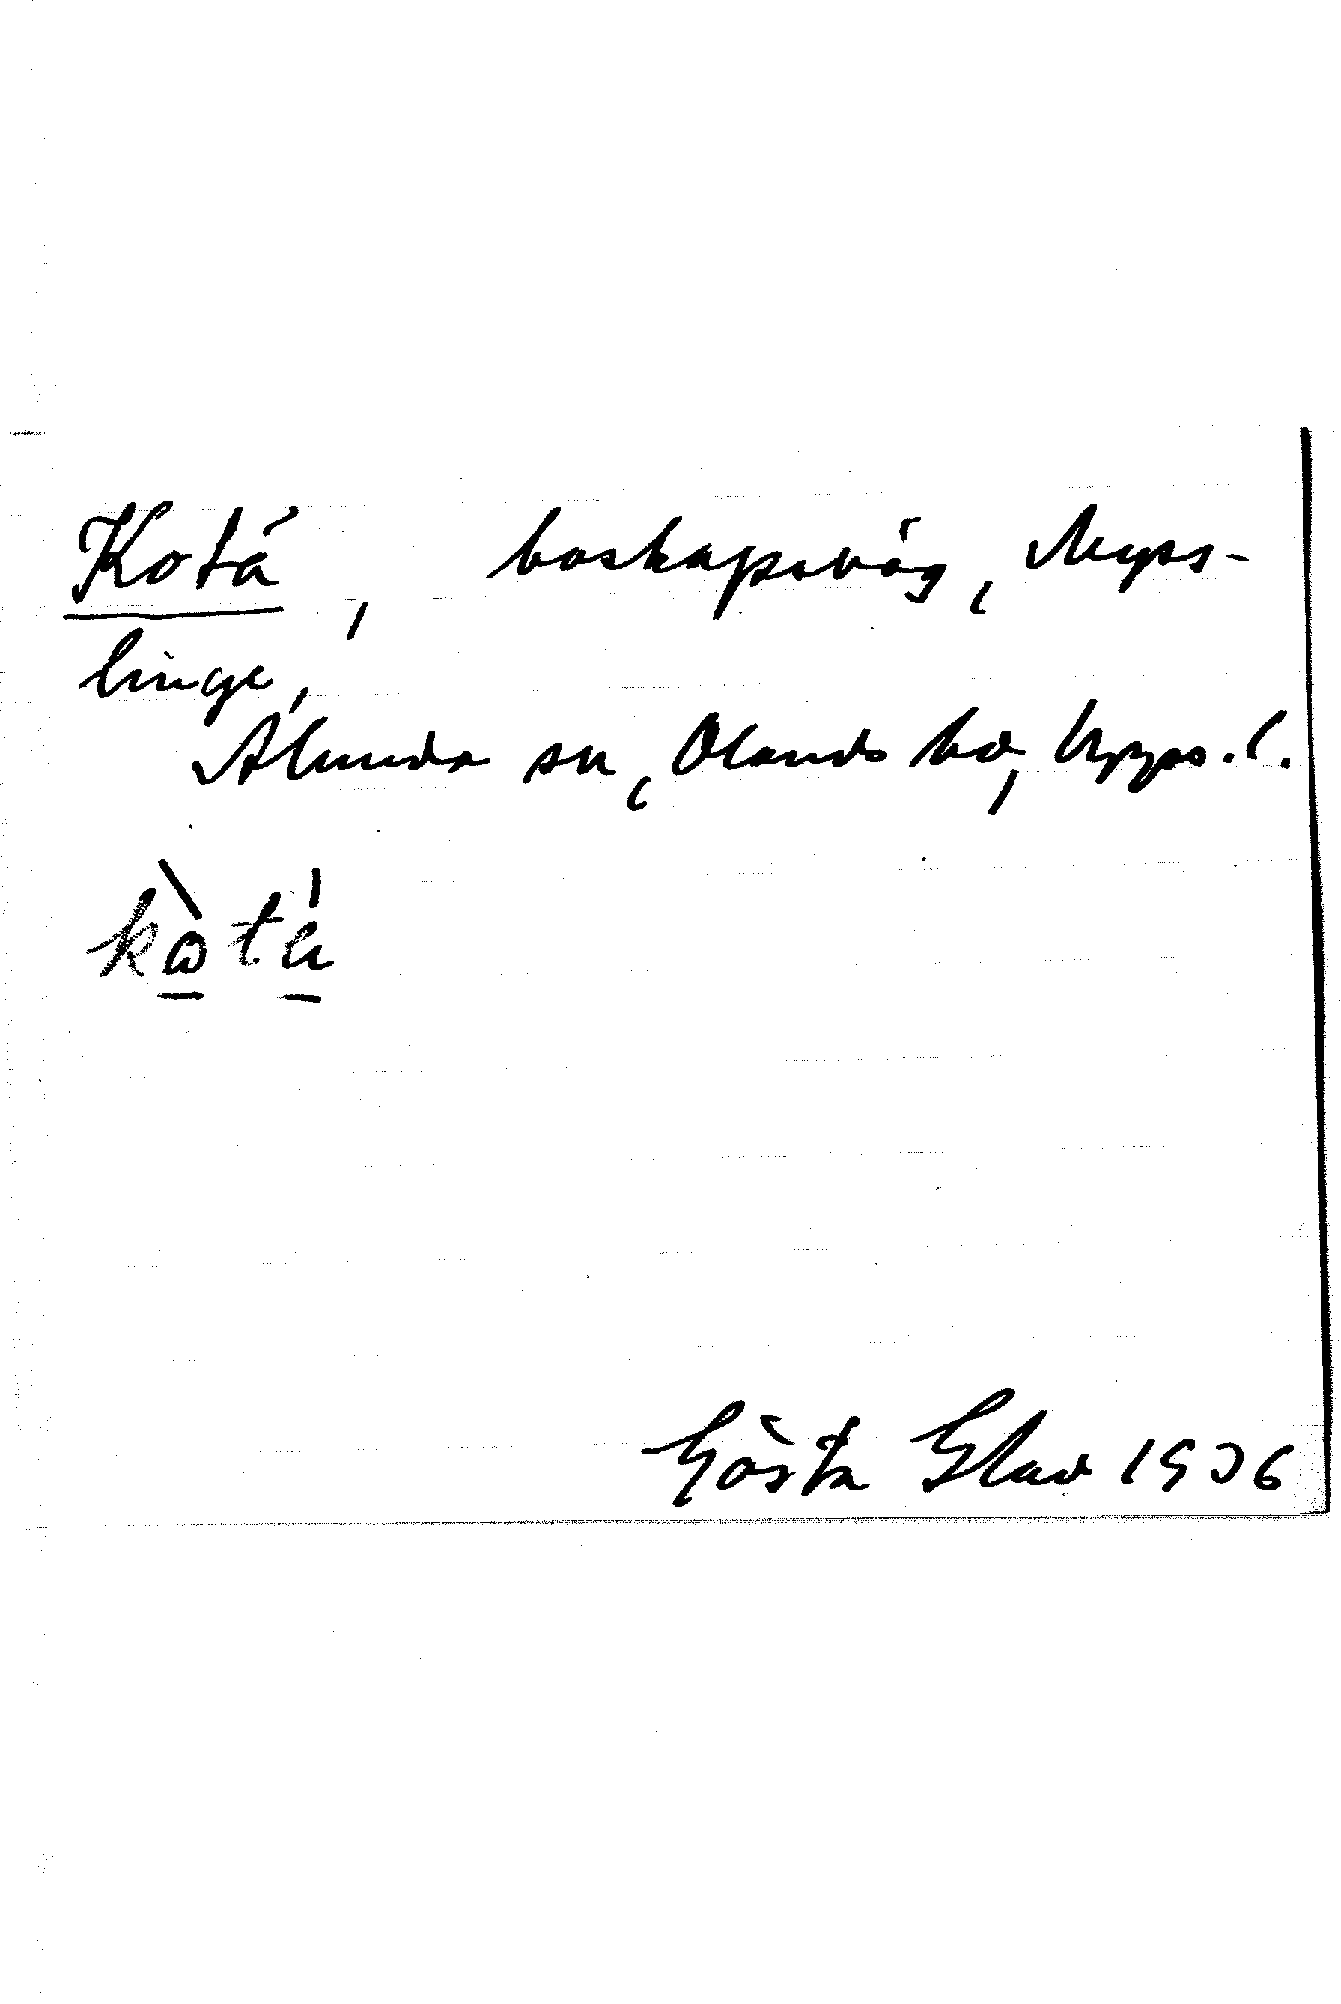 Kotå, boskapsväg, Myss-
linge,
Alunda sn, Olands hd, Upps. l.
kòtá
Gösta